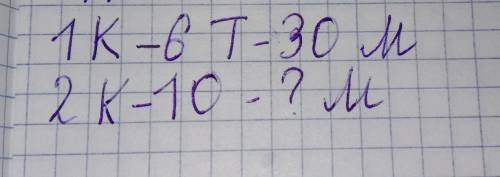 1К-6 Т-30 М
2К-10 - ? М